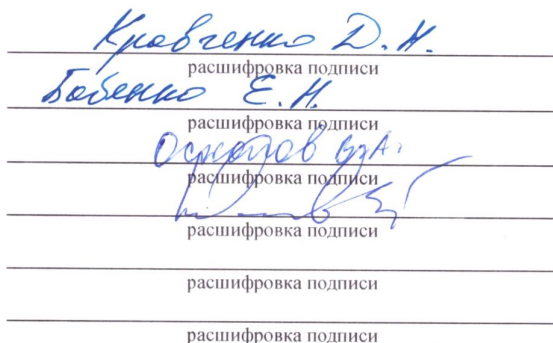 Кравченко Д. Н.
расшифровка подписи
Бабенко Е. Н.
расшифровка подписи
расшифровка подписи
расшифровка подписи
расшифровка подписи
расшифровка подписи